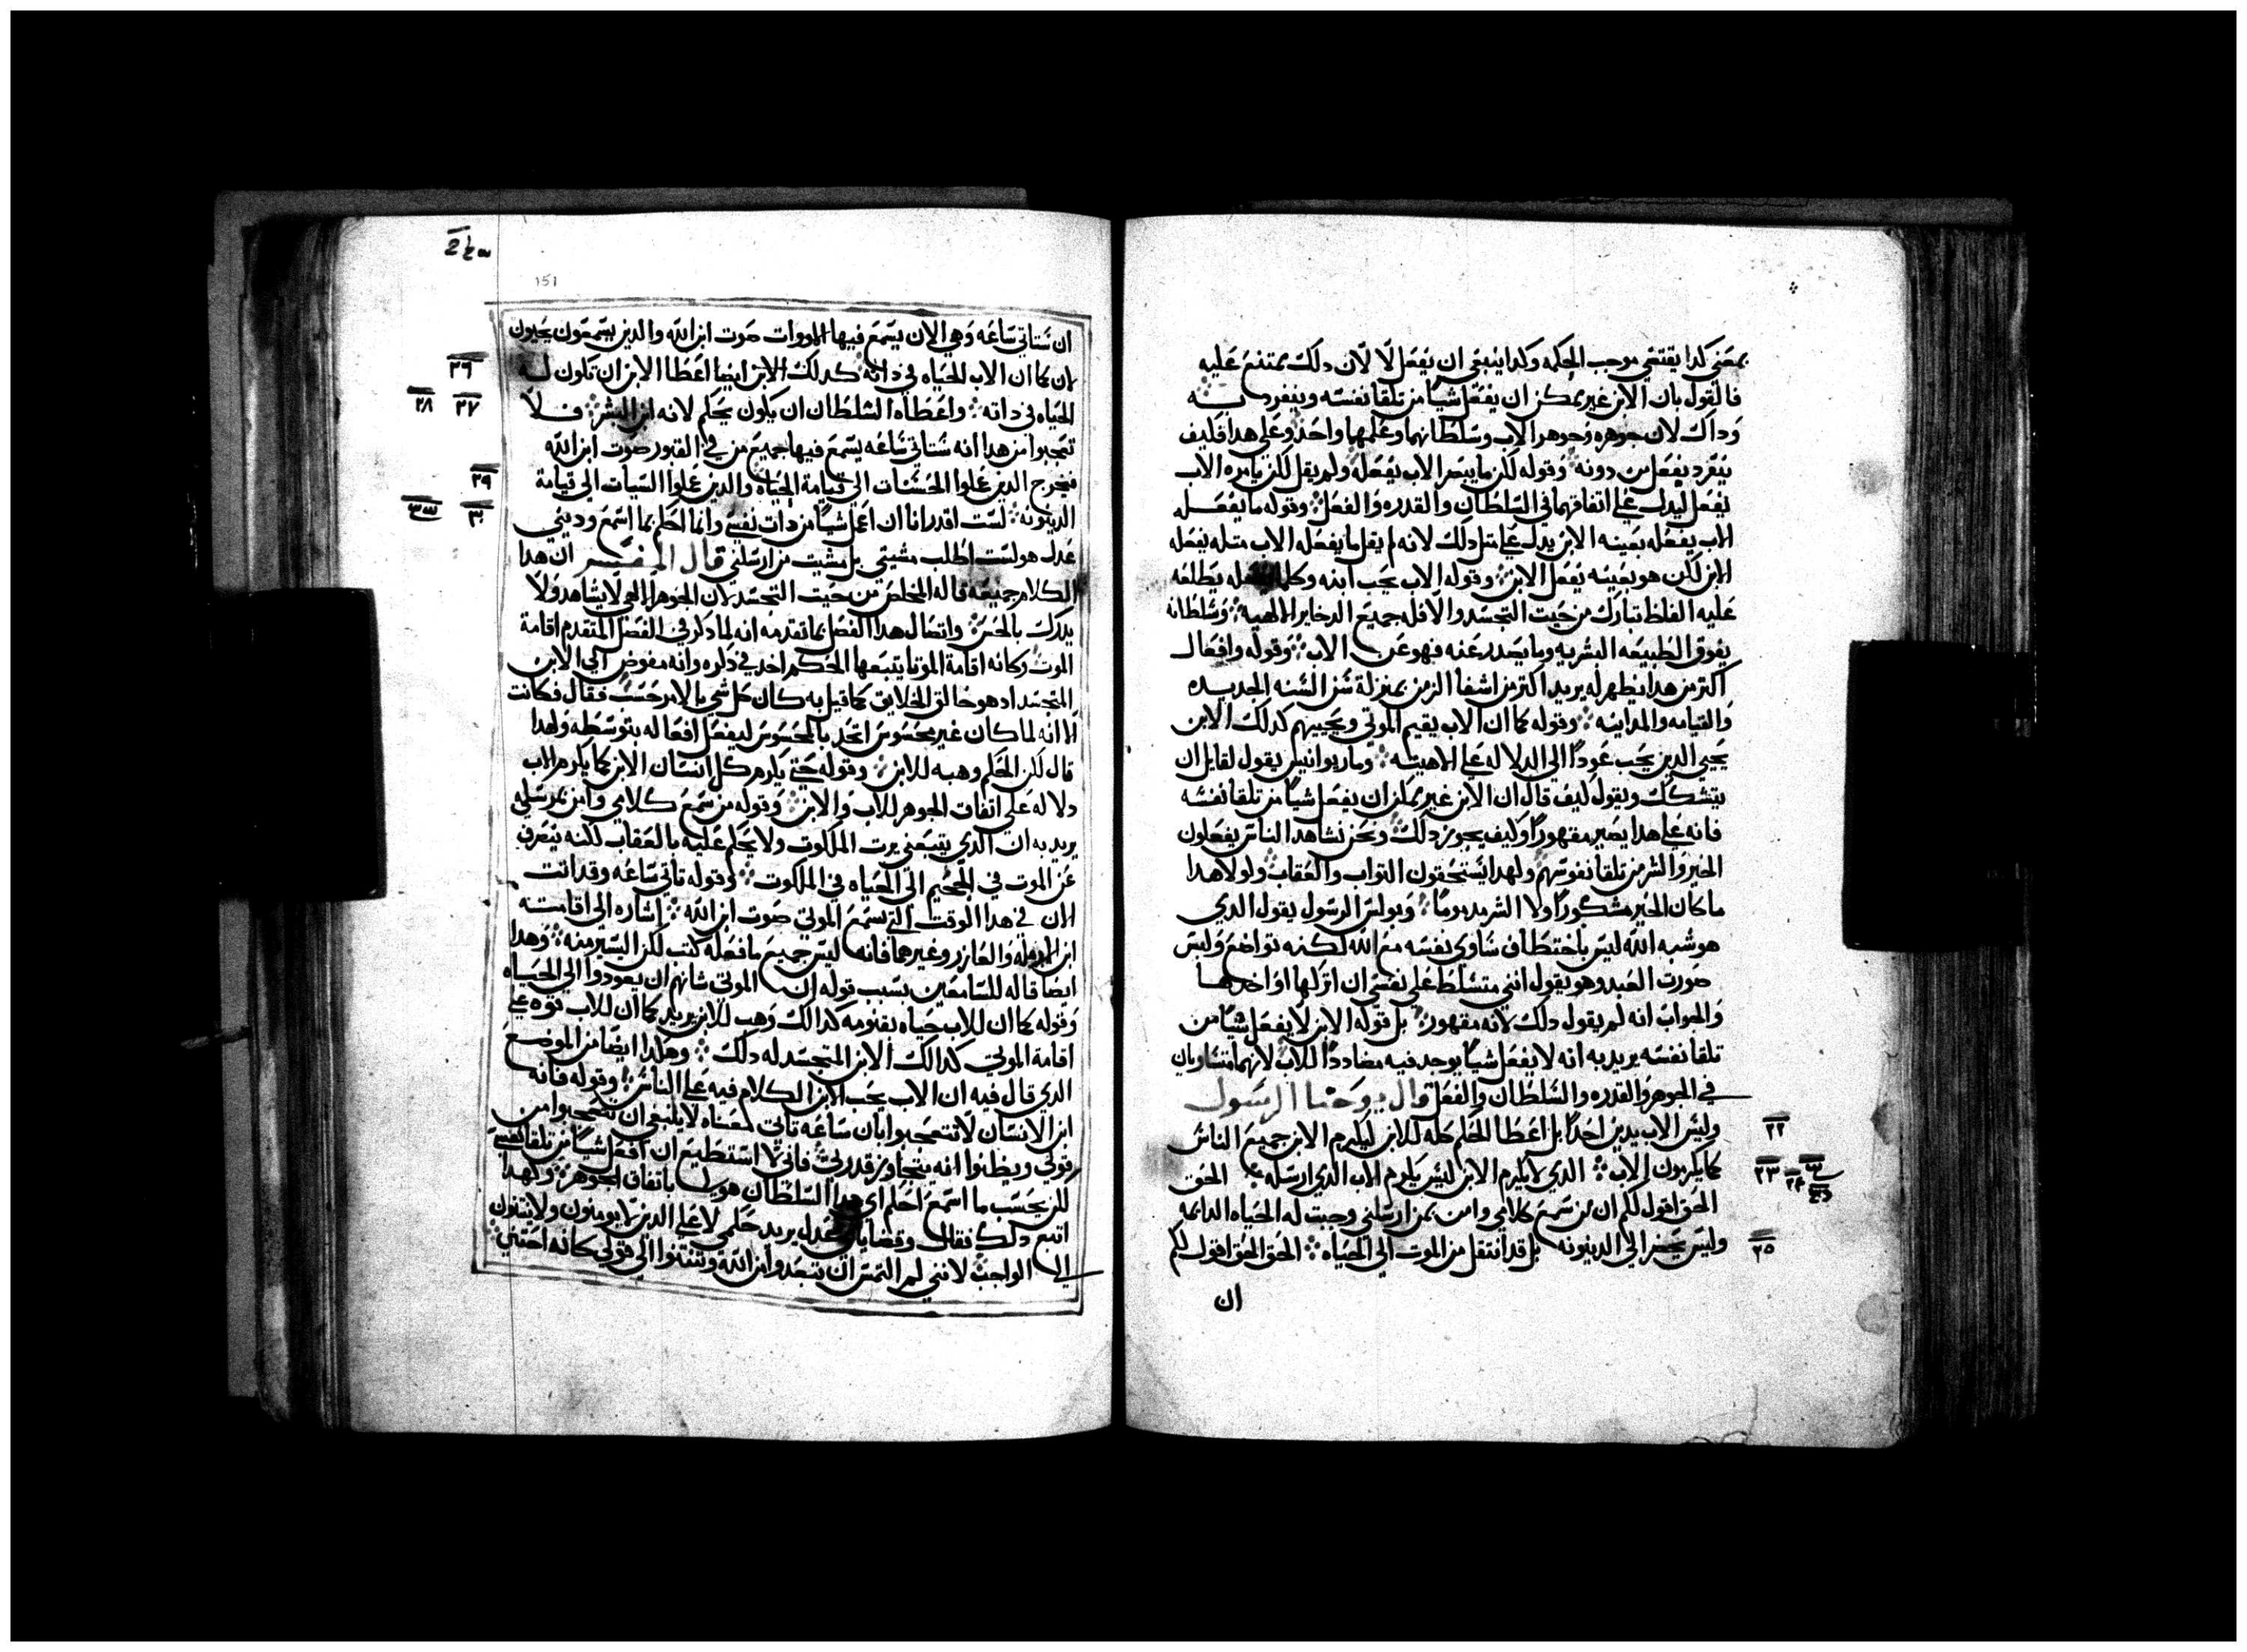 بمعني كدا يقتضي موجب الحكمه وكدا ينبغي ان يفعل لا لان دلك يمتنع عليه
فالقول بان الابن غير يمكن ان يفعل شيا من تلقا نفسه وينفرد به
وداك لان جوهره وجوهر الاب وسلطانهما وعلمهما واحد وعلي هدا فكيف
ينفرد بفعل من دونه وقوله لكن ما يبصر الاب يفعله ولم يقل لكن يامره الاب
يفعل ليدل علي اتفاقهما في السلطان والقدره والفعل وقوله ما يفعل
الاب يفعله بعينه الابن يدل علي مثل دلك لانه لم يقل ما يفعله الاب مثله يفعله
الابن لكن هو بعينه يفعل الابن وقوله الاب يحب ابنه وكلما يفعله يطلعه
عليه الفلظ تبارك من حيت التجسد والا فله جميع الدخاير الالهيه وسلطانه
يفوق الطبيعه البشريه وما يصدر عنه فهو عن الاب وقوله وافعال
اكتر من هدا يظهر له يريد اكتر من اشفا الزمن بمنزلة سن السنه الجديده
والقيامه والمداينه وقوله كما ان الاب يقيم الموتي ويحييهم كدلك الابن
يحيي الدين يحب عودا الي الدلاله علي الاهيته وماريوانيس يقول لقايل ان
يتشكك ويقول كيف قال ان الابن غير يمكن ان يفعل شيا من تلقا نفسه
فانه علي هدا يصير مقهورا وكيف يجوز دلك ونحن نشاهد الناس يفعلون
الخير والشر من تلقا نفوسهم ولهدا يستحقون التواب والعقاب ولولا هدا
ما كان الخير مشكورا ولا الشر مدموما وبولس الرسول يقول الدي
هو شبه الله ليس باختطاف ساوي نفسه مع الله لكنه تواضع ولبس
صورت العبد وهو يقول انني متسلط علي نفسي ان اتركها او اخدها
والجواب انه لم يقول دلك لانه مقهور بل قوله الابن لا يفعل شيا من
تلقا نفسه يريد به انه لا يفعل شيا يوجد فيه مضاددا للاب لانهما متساويان
في الجوهر والقدره والسلطان والفعل قال يوحنا الرسول
٢٢ وليس الاب يدين احدا بل اعطا الحكم كله للابن ليكرم الابن جميع الناس
٢٣ ٢٤ كما يكرمون الاب الدي لا يكرم الابن ليس يكرم الاب الدي ارسله الحق
الحق اقول لكم ان من سمع كلامي وامن بمن ارسلني وجبت له الحياه الدايمه
٢٥ وليس يحضر الي الدينونه بل قد انتقل من الموت الي الحياه الحق الحق اقول لكم
ان
151
ان ستاتي ساعه وهي الان يسمع فيها الاموات صوت ابن الله والدين يسمعون يحيون
٢٦ لان كما ان الاب الحياه في داته كدلك الابن ايضا اعطا الابن ان تكون له
٢٧ ٢٨ الحياه في داته واعطاه السلطان ان يكون يحكم لانه ابن البشر فلا
تعجبوا من هدا انه ستاتي ساعه يسمع فيها جميع من في القبور صوت ابن الله
٢٩ فيخرج الدين عملوا الحسنات الي قيامة الحياه والدين عملوا السيات الي قيامة
٣٠ الدينونه لست اقدر انا ان اعمل شيا من دات نفسي وانما احكم بما اسمع وديني
عدل هو لست اطلب مشيتي بل مشيت من ارسلني قال المفسر ان هدا
الكلام جميعه قاله المخلص من حيت التجسد لان الجوهر الالهي لا يشاهد ولا
يدرك بالحس واتصال هدا الفصل بما تقدمه انه لما دكر في الفصل المتقدم اقامة
الموت وكانه اقامة الموتا يتبعها الحكم اخد في دكره وانه مفوض الي الابن
المتجسد اد هو خالق الخلايق كما قيل به كان كل شي بالامر حسب فقال فكانت
الا انه لما كان غير محسوس اتحد بالمحسوس ليفعل افعاله بتوسطه ولهدا
قال لكن الحكم وهبه للابن وقوله حتي يكرم كل انسان الابن كما يكرم الاب
دلاله علي اتفاق الجوهر للاب والابن وقوله من سمع كلامي وامن بمرسلي
يريد به ان الدي يتبعني يرت الملكوت ولا يحكم عليه بالعقاب لكنه ينصرف
عن الموت في الجحيم الي الحياه في الملكوت وقوله تاتي ساعه وقد اتت
الان في هدا الوقت التي تسمع الموتي صوت ابن الله اشاره الي اقامته
ابن الارمله والعازر وغيرهما فانه ليس جميع ما فعله كتب لكن اليسير منه وهدا
ايضا قاله للسامعين بسبب قوله ان الموتي شانهم ان يعودوا الي الحياه
وقوله كما ان للاب حياه بقنومه كدالك وهب للابن يريد كما ان للاب قوه علي
اقامة الموتي كدالك الابن المتجسد له دلك وهكدا ايضا من الموضع
الدي قال فيه ان الاب يحب الابن الكلام فيه علي الناس وقوله فانه
ابن الانسان لا تتعجبوا بان ساعه تاتي معناه لا ينبغي ان تتعجبوا من
قولي ويظنوا انه يتجاوز قدري فاني لا استطيع ان افعل شيا من تلقا نفسي
لكن بحسب ما اسمع احكم اي هدا السلطان هو لي باتفاق الجوهر ولهدا
اتبع دلك فقال وقضاي عدل يريد حكمي لا علي الدين لا يومنون ولا ينتنون
الي الواجب لانني لم التمس ان تبعدوا ابن الله وتنتنوا الي قولي كانه اجنبي